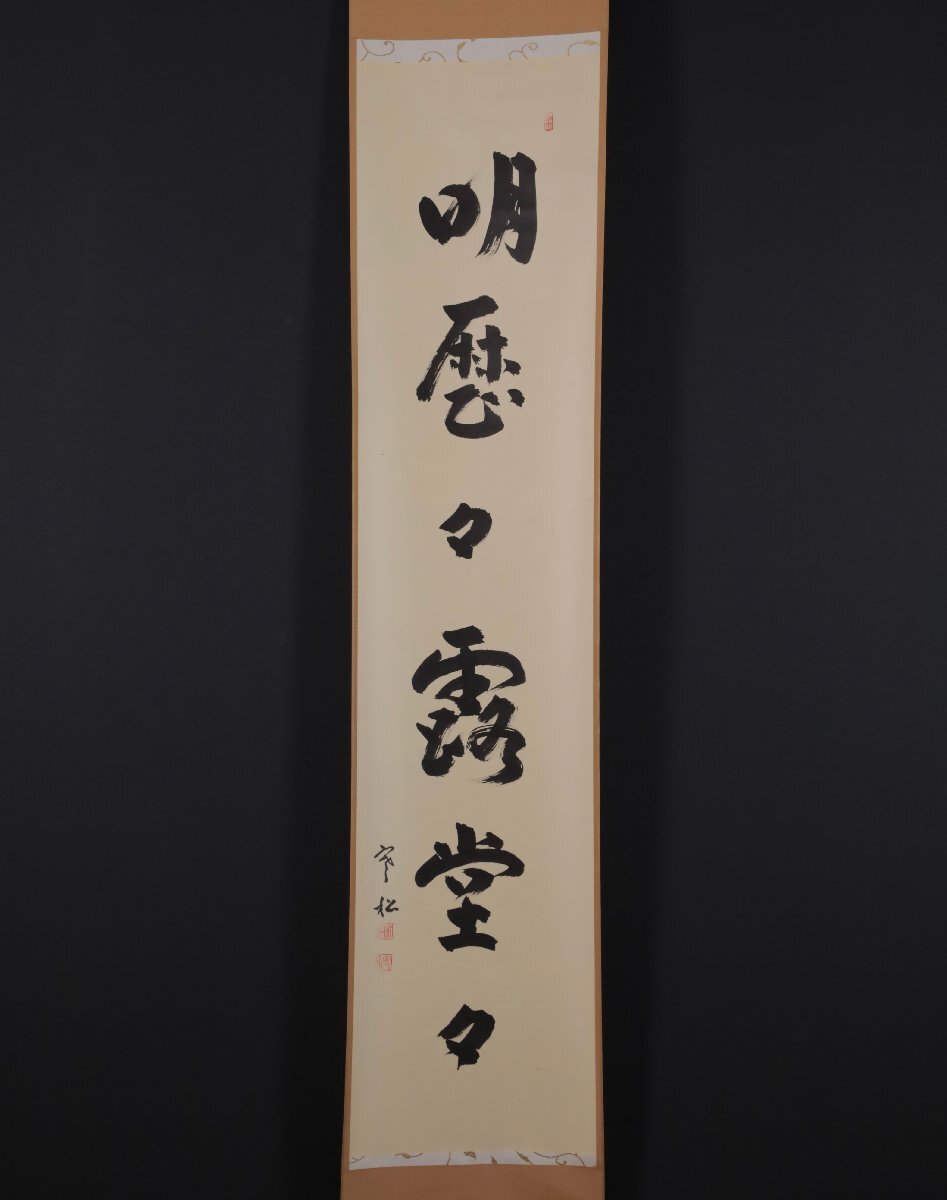 明歴々露堂々
寒松